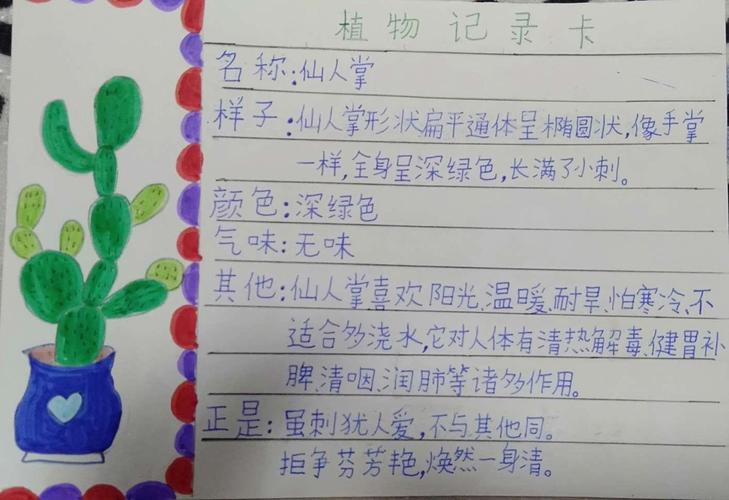 植物记录卡
名称:仙人掌
样子:仙人掌形状扁平通体呈椭圆状,像手掌
一样,全身呈深绿色,长满了小刺。
颜色:深绿色
气味:无味
其他:仙人掌喜欢阳光、温暖、耐旱、怕寒冷、不
适合多浇水,它对人体有清热解毒、健胃补
脾、清咽、润肺等诸多作用。
正是:虽刺犹人爱,不与其他同。
拒争芬芳艳,焕然一身清。